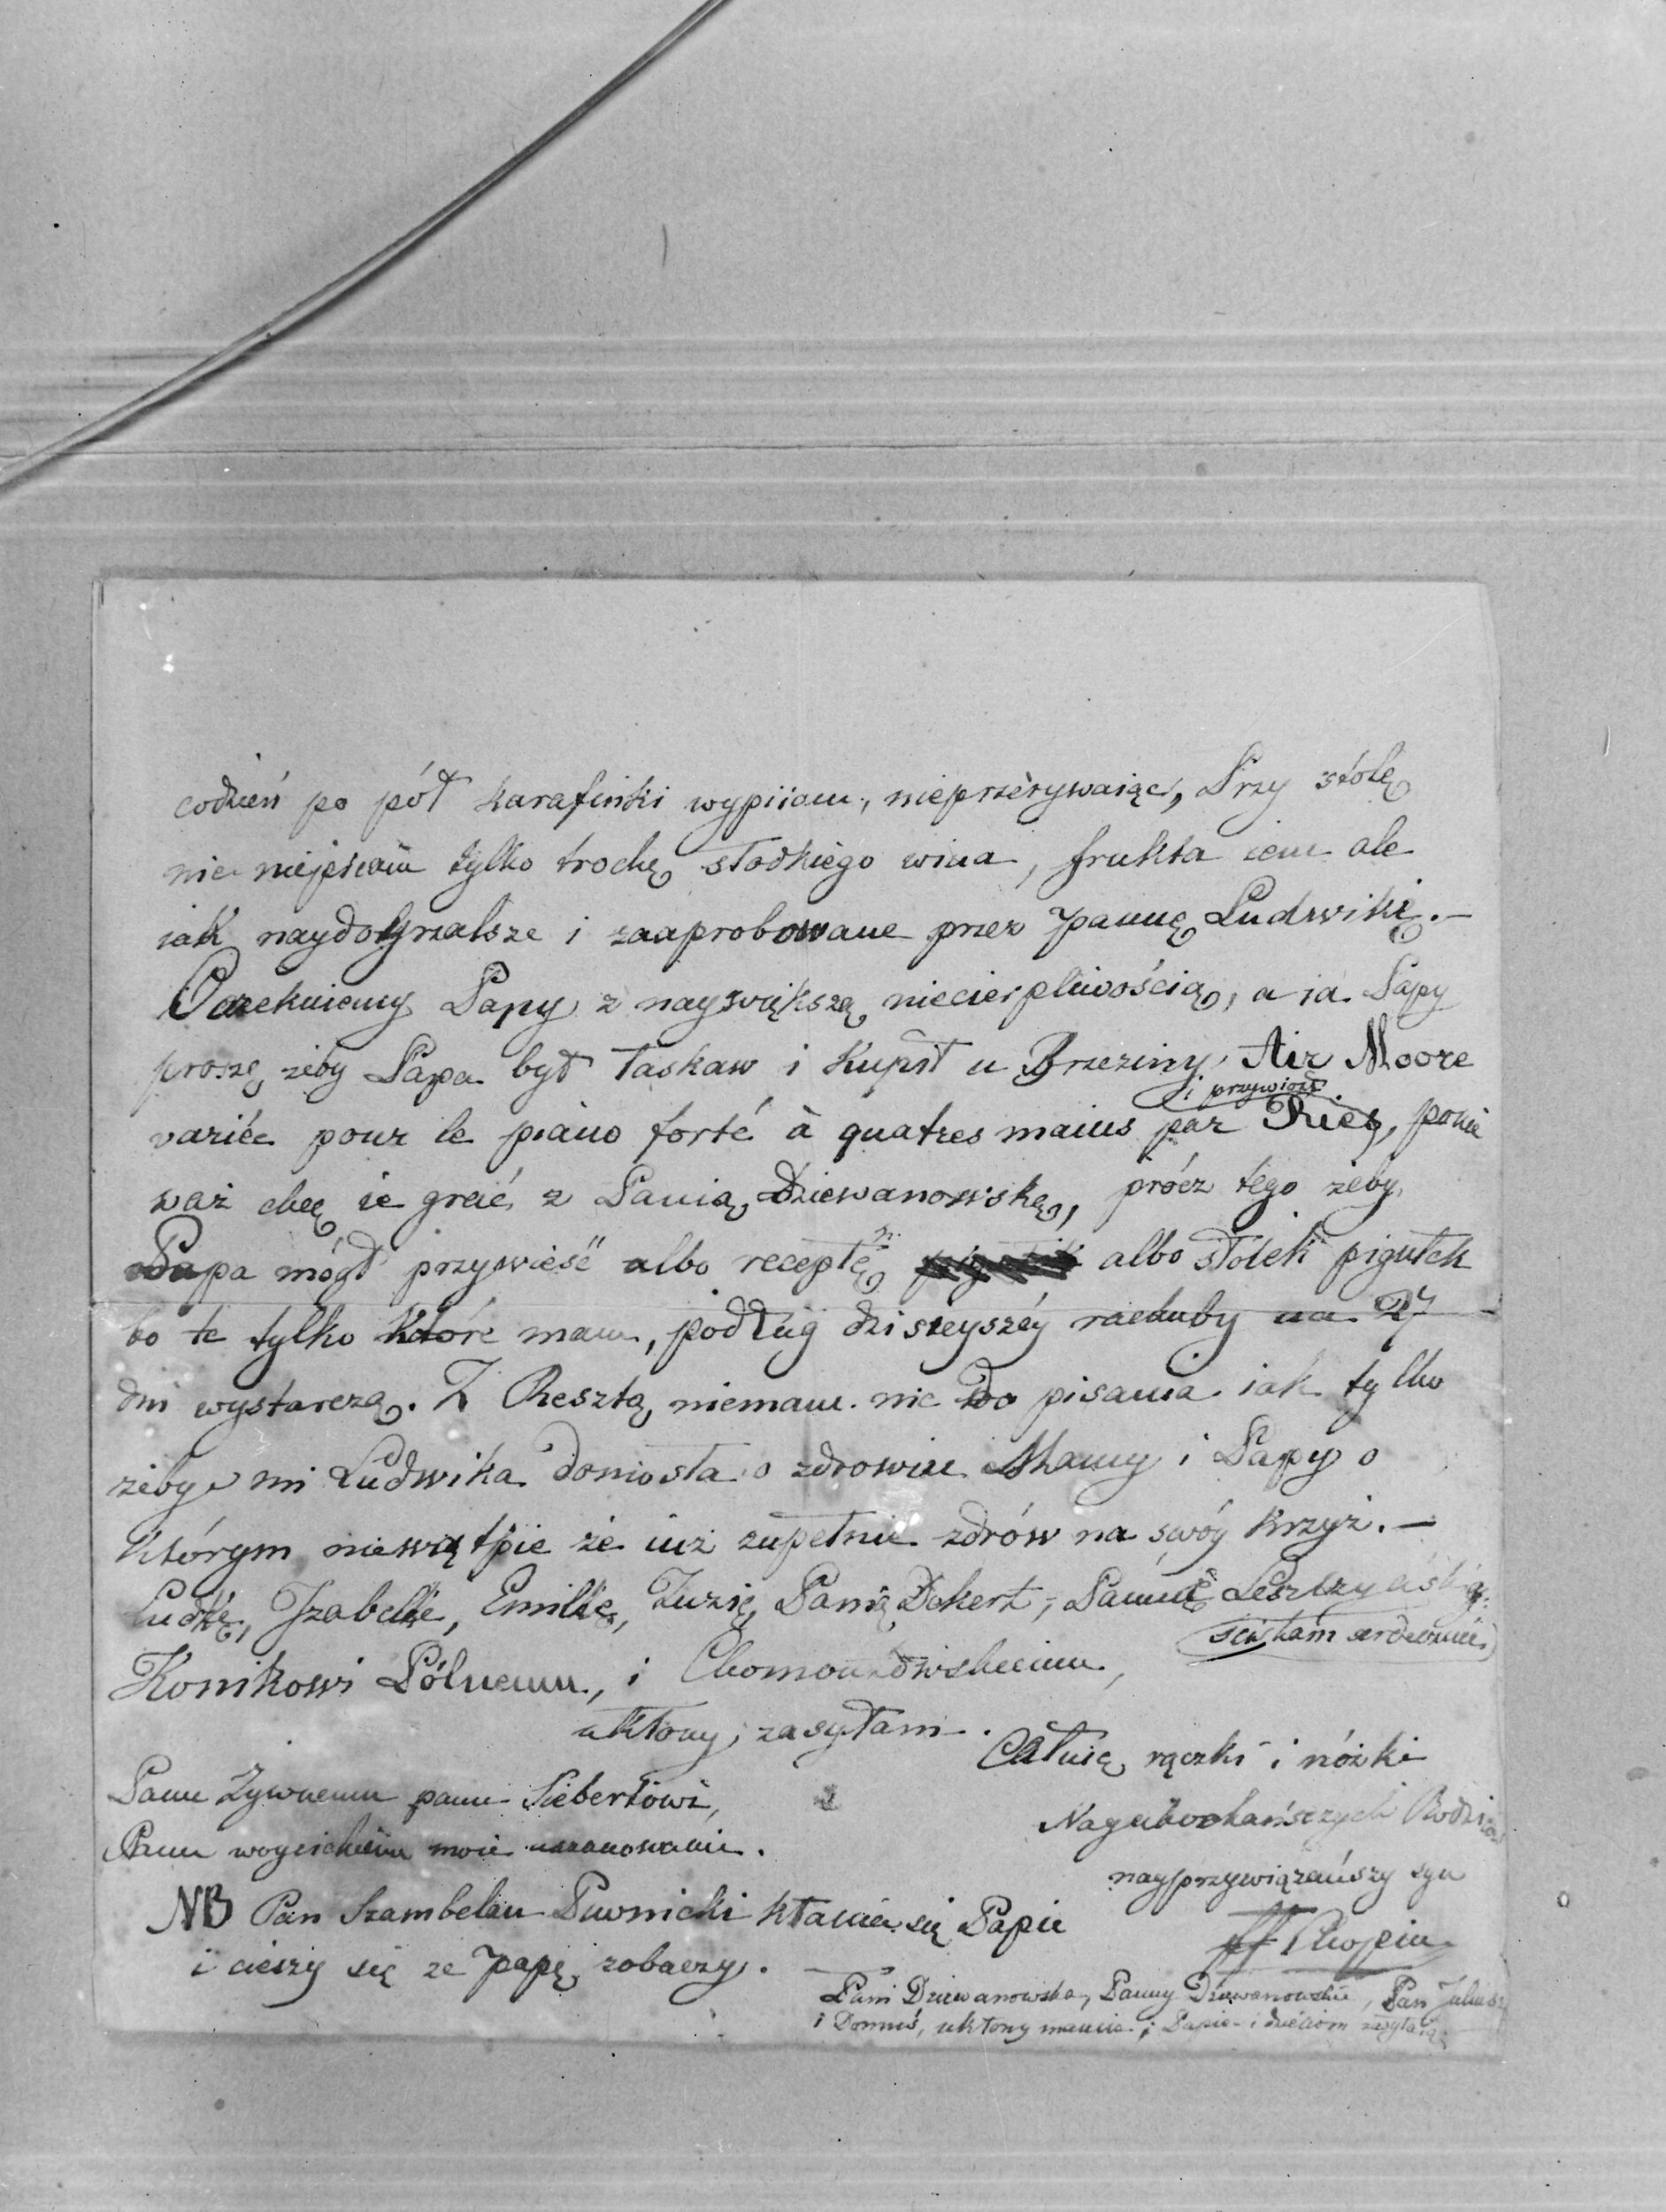 codzień po pół karafinki wypiiam, nieprzerywaiąc, Przy stolę
nic niejestem tylko trochę słodkiego wina, frukta iem ale
iak naydoyrzalsze i zaaprobowane przez Pannę Ludwikę.—
Oczekuiemy Papy z naywiększą niecierpliwością, a ia Papy
proszę żeby Papa był łaskaw i kupił u Brzeziny Air Moore
i przywiózł
variée pour le piano forté à quatres mains par Ries, ponie
waż chcę ie grać z Panią Dziewanowską, prócz tego żeby
Papa mógł przywieść albo receptę albo słóiek pigułek
bo te tylko które mam, podług dzisieyszéy rachuby na 27
dni wystarczą. Z Resztą niemam nic do pisania iak tylko
żeby mi Ludwika doniosła o zdrowiu Mamy i Papy o
którym niewątpię że iuż zupełnie zdrów na swóy krzyż.—
Ludkę, Izabellę, Emilkę, Zuzię, Panią Dekert, Pannę Leszczyńską
sciskam serdecznie
Konikowi Pólnemu, i
ukłony zasyłam.
Całuię rączki i nóżki
Panu Żywnemu panu Siebertowi,
Nayukochańszych Rodziców
Panu woyciehiem moie uszanowanie.
nayprzywiązańszy syn
NB Pan Szambelan Piwnicki kłania się Papie
FF Chopin
i cieszy się ze Papę zobaczy.
Pani Dziewanowska, Panny Dziewanowskie, Pan Juliusz
i Domuś, ukłony mamie i Papie i dzieciom zasyłaią